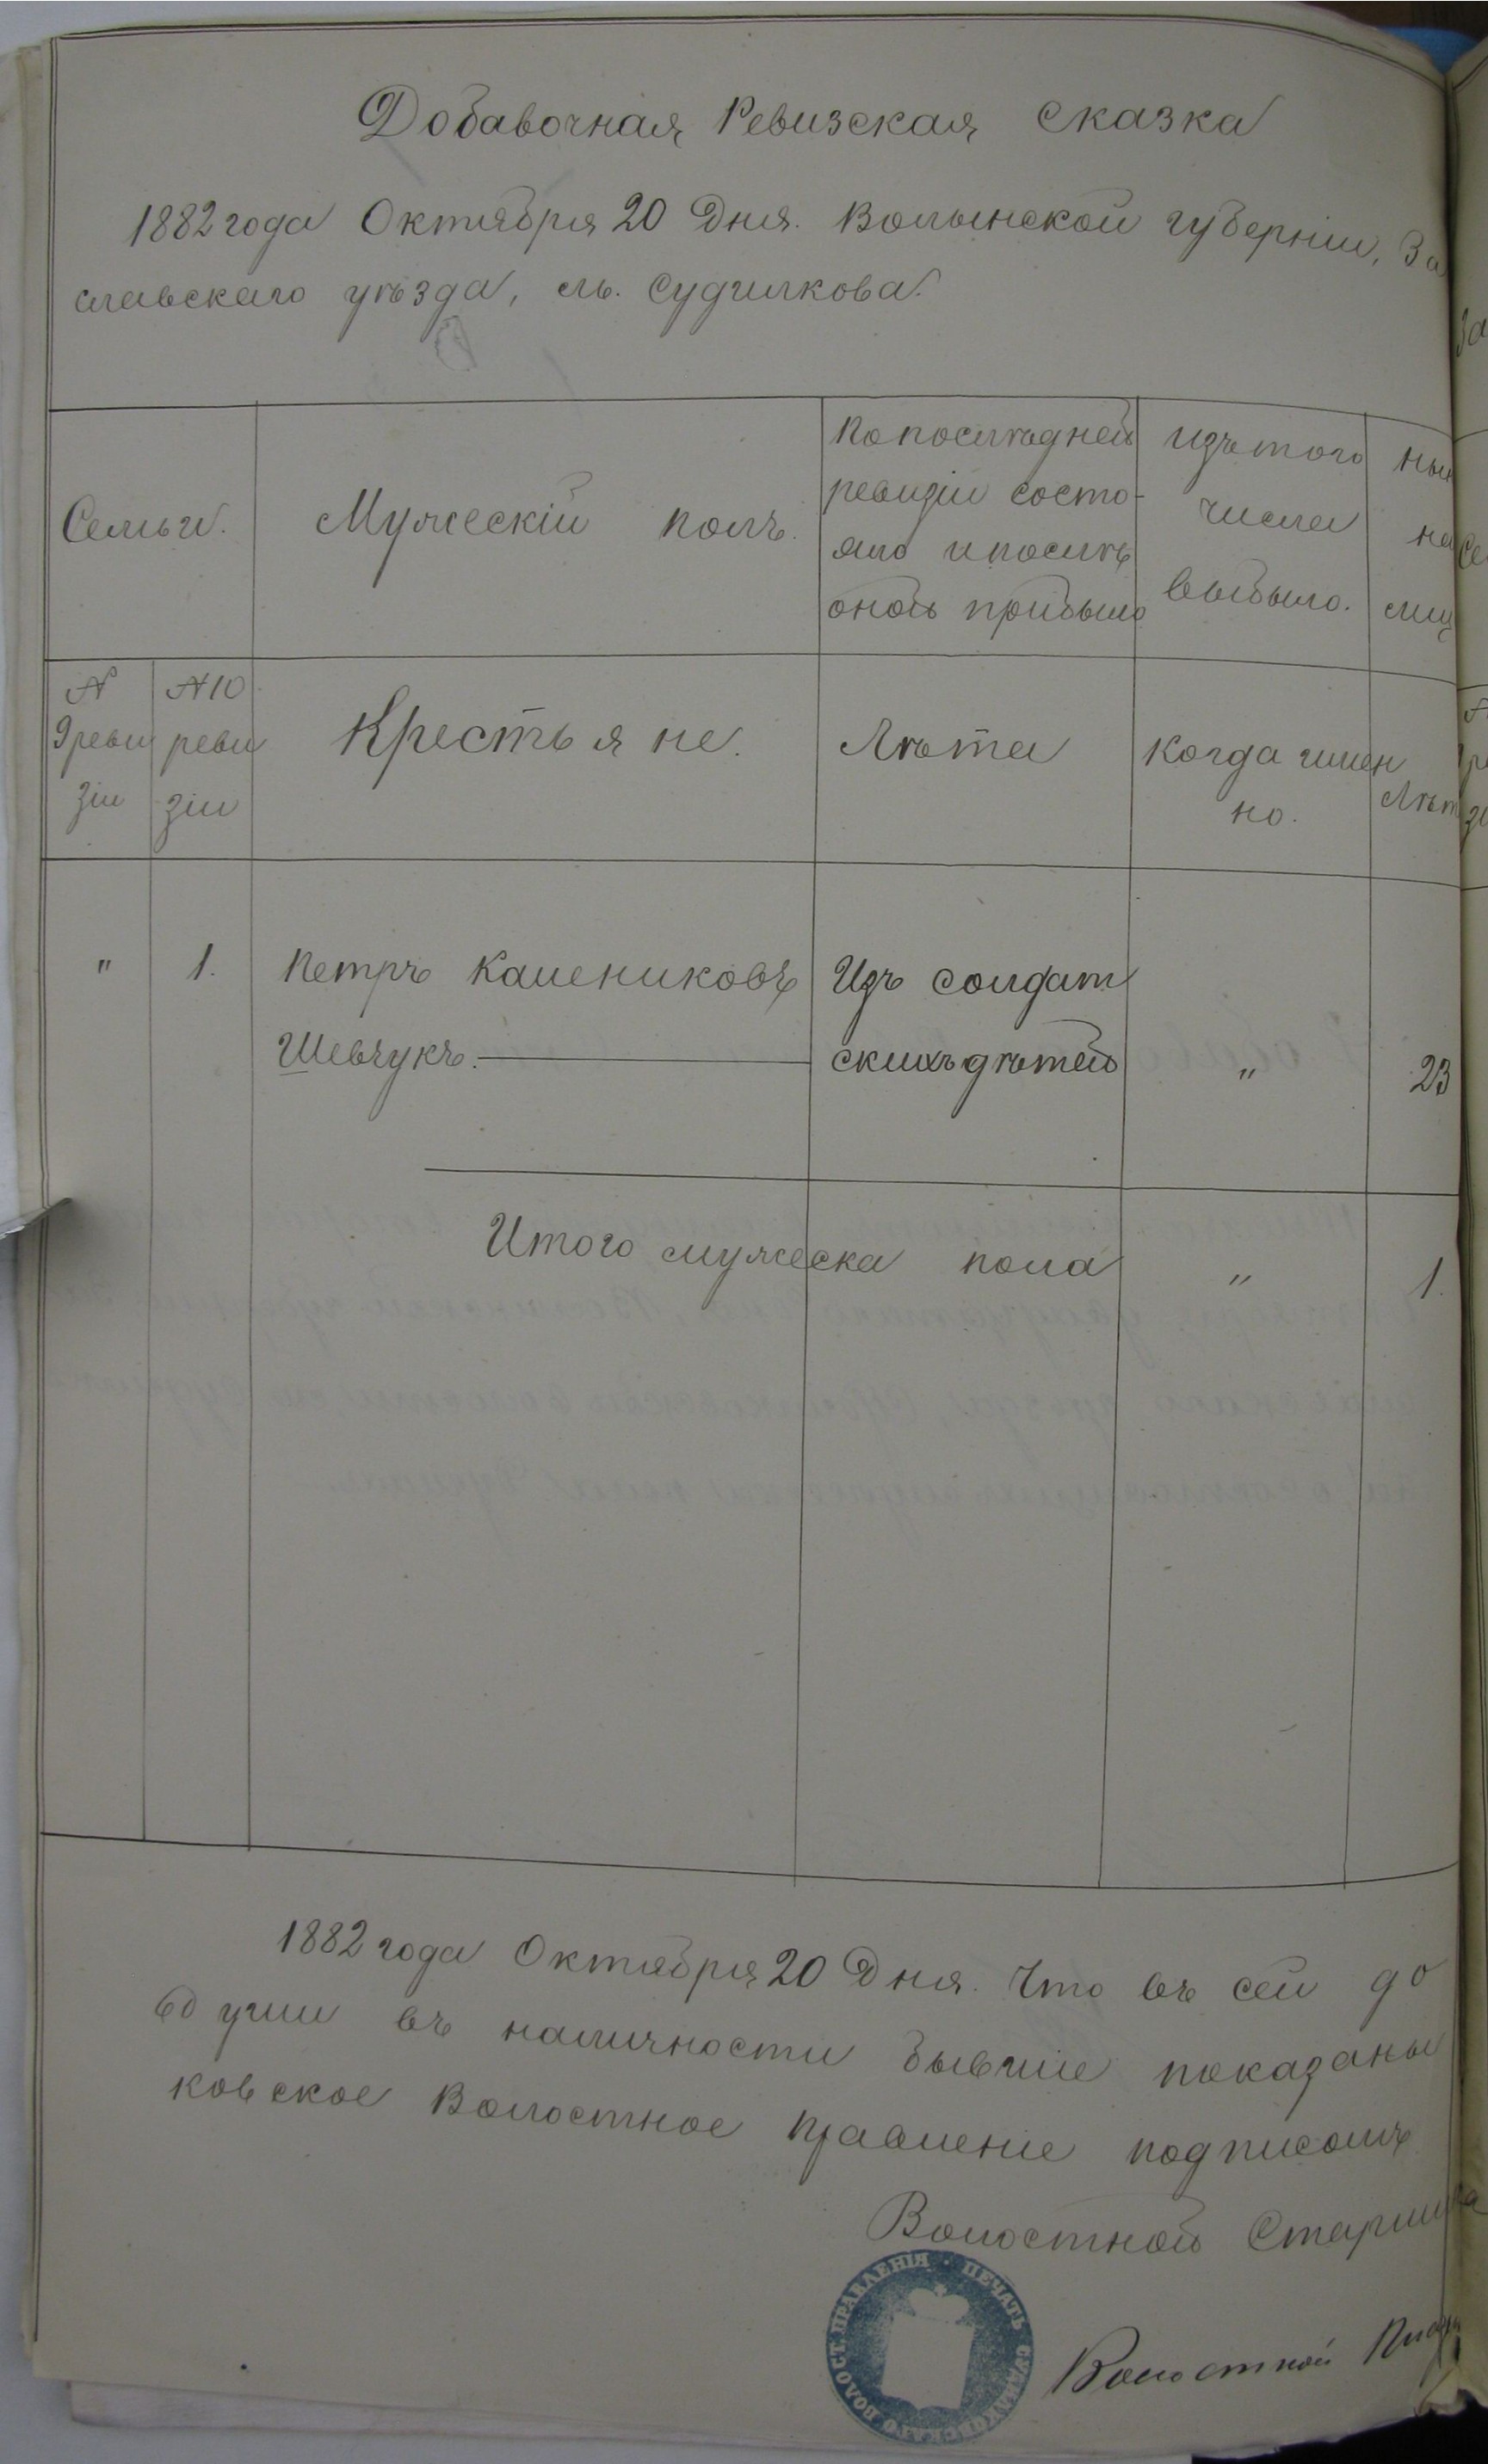 Добавочная Ревизская сказка
1882 года Октября 20 Дня. Волынской губернии, За
славскаго уѣзда, м. Судилкова.
Семьи.
Мужескій полъ.
По послѣдней
ревизіи состо-
яло и послѣ
оной прибыло
Изъ того
числа
выбыло.
Нын
на
лиц
№
9 реви
зіи
№ 10
реви
зіи
Крестьяне.
Лѣта
Когда имен
но.
Лѣт
"
1.
Петръ
Изъ солдат
Шевчукъ.
скихъ дѣтей
"
23
Итого мужеска пола
"
1.
1882 года Октября 20 Дня. Что въ сей до
души въ наличности бывшие показаны
ковское Волостное Правление подписомъ
Волостной Старшина
Волостной
ПЕЧАТЬ СУДИЛКОВСКАГО ВОЛОСТ. ПРАВЛЕНІЯ